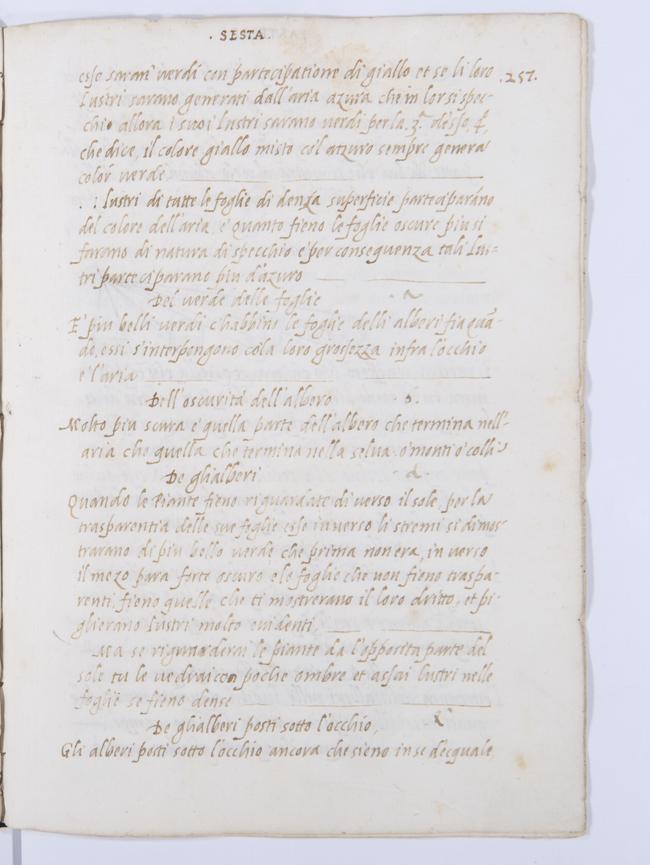 . SESTA .
.257.
esse saran' uerdi con partecipatione di giallo et se li loro
lustri sarano generati dall'aria azura che in lor si spec-
chio allora i suoi lustri sarano uerdi per la .3.ª desso .4.
che dice, il colore giallo misto co'l azuro sempre genera
color uerde
. : lustri di tutte le foglie di densa superficie participarano
del colore dell'aria, e quanto fieno le foglie oscure piu si
farano di natura di specchio e per conseguenza tali lus-
tri parteciparano piu d'azuro
Del uerde delle foglie
E' piu belli uerdi c'habbino le foglie delli alberi fia quā-
do, essi s'interpongono cō la loro grossezza infra l'occhio
e l'aria
Dell'oscurità dell'albero
Molto piu scura è quella parte dell'albero che termina nell'
aria che quella che termina nella selua o' monti o' colli
De gli alberi
Quando le Piante fieno riguardate di uerso il sole, per la
trasparentia delle sue foglie esse inuerso li stremi si dimos-
trarano di piu bello uerde che prima non era, in uerso
il mezo para forte oscuro e le foglie che non fieno traspa-
renti, fieno quelle che ti mostrerano il loro dritto, et pi-
glierano lustri molto euidenti
Ma se riguarderai le piante da l'opposita parte del
sole tu le uedrai con poche ombre et assai lustri nelle
foglie se fieno dense
De gli alberi posti sotto l'occhio,
Gli alberi posti sotto l'occhio ancora che sieno in se d'equale,